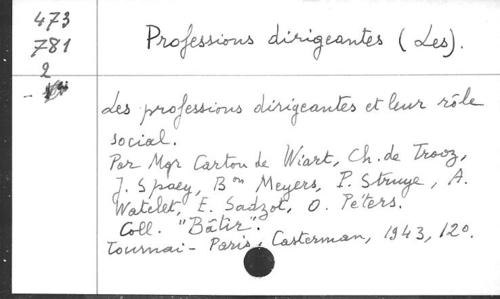 473
781
2
Professions dirigeantes (Les).
Les professions dirigeantes et leur rôle
social.
Par Mgr Carton de Wiart, Ch. de Trooz,
J. Spaey, Bon Meyers, P. Struye, A.
Watelet, E. Sadzot, O. Péters.
Coll. "Bâtir".
Tournai - Paris, Casterman, 1943, 12o.